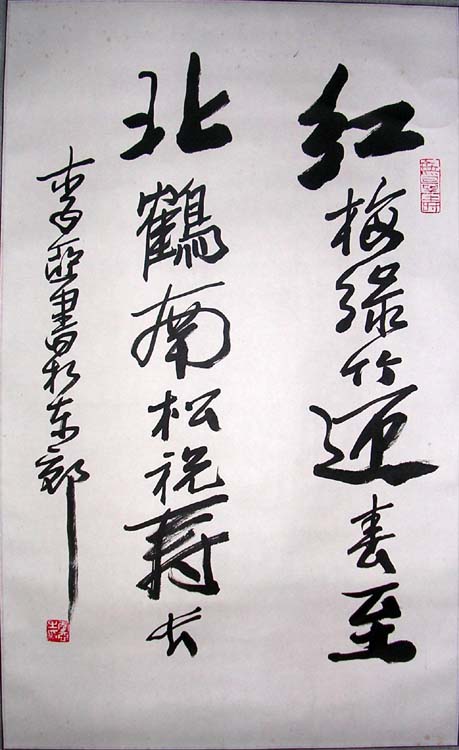 红梅绿竹迎春至
北鹤南松祝寿长
李亚书于东郡